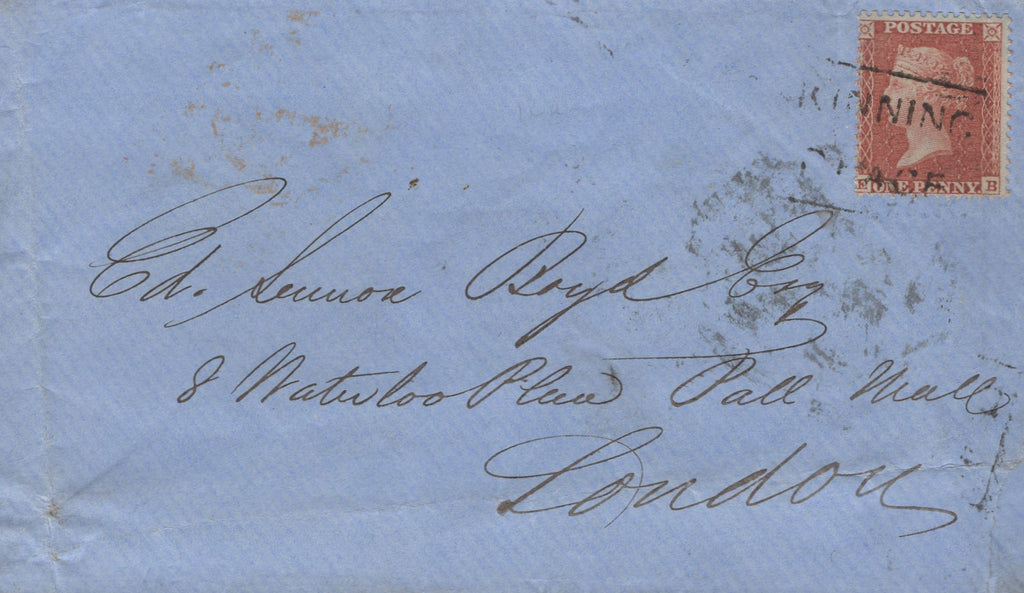 POSTAGE
KINNING
PLACE
ONE PENNY B
Ed. Lennox Boyd Esq
8 Waterloo Place Pall Mall
London